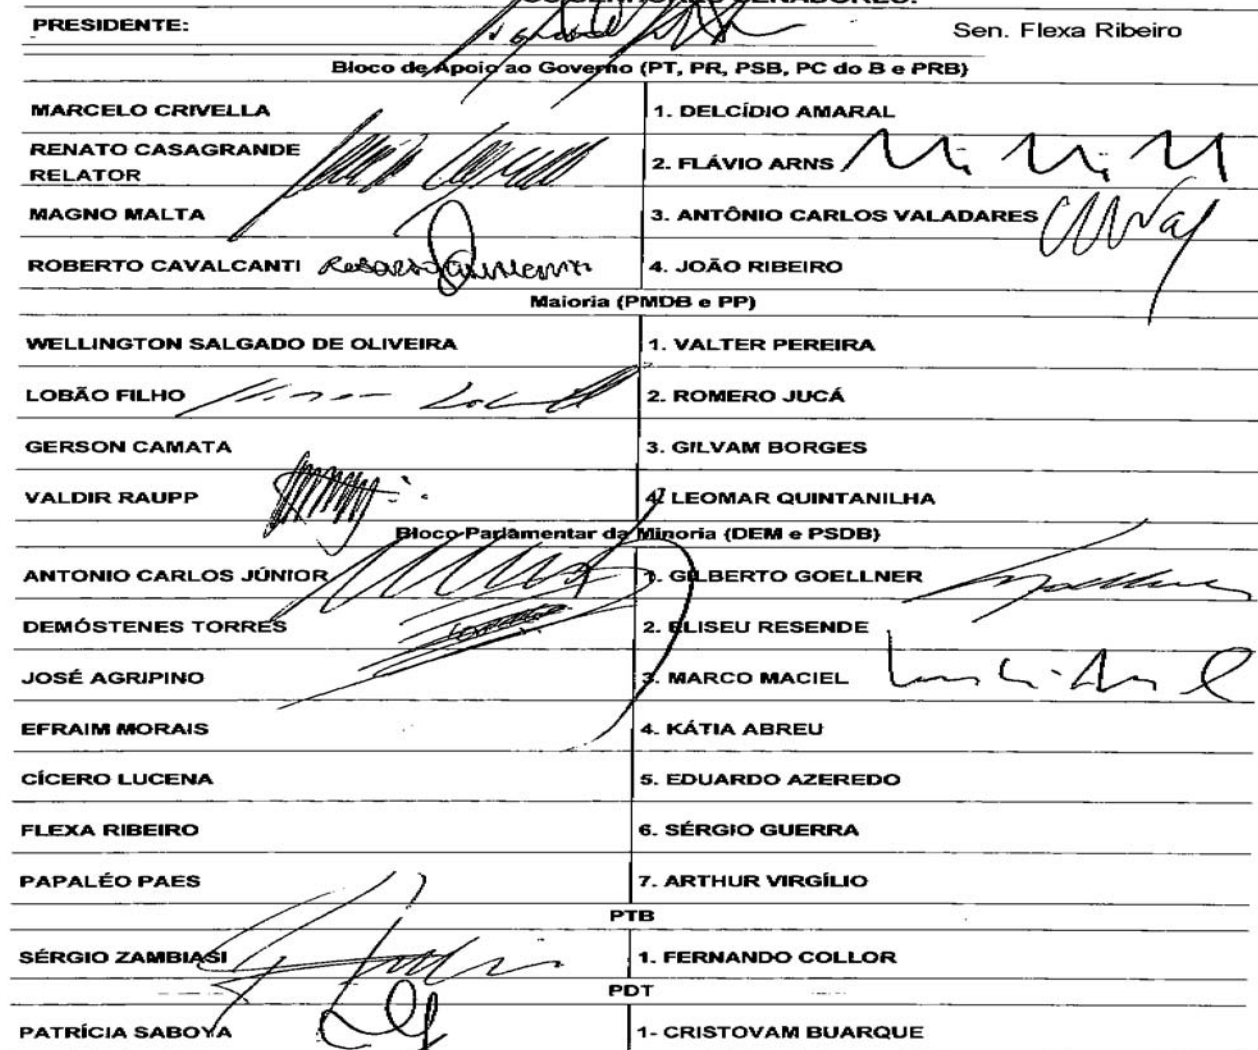 OS SENHORES SENADORES:
PRESIDENTE: Sen. Flexa Ribeiro
Bloco de Apoio ao Governo (PT, PR, PSB, PC do B e PRB)
MARCELO CRIVELLA 1. DELCÍDIO AMARAL
RENATO CASAGRANDE
RELATOR 2. FLÁVIO ARNS
MAGNO MALTA 3. ANTÔNIO CARLOS VALADARES
ROBERTO CAVALCANTI 4. JOÃO RIBEIRO
Maioria (PMDB e PP)
WELLINGTON SALGADO DE OLIVEIRA 1. VALTER PEREIRA
LOBÃO FILHO 2. ROMERO JUCÁ
GERSON CAMATA 3. GILVAM BORGES
VALDIR RAUPP 4. LEOMAR QUINTANILHA
Bloco Parlamentar da Minoria (DEM e PSDB)
ANTONIO CARLOS JÚNIOR 1. GILBERTO GOELLNER
DEMÓSTENES TORRES 2. ELISEU RESENDE
JOSÉ AGRIPINO 3. MARCO MACIEL
EFRAIM MORAIS 4. KÁTIA ABREU
CÍCERO LUCENA 5. EDUARDO AZEREDO
FLEXA RIBEIRO 6. SÉRGIO GUERRA
PAPALÉO PAES 7. ARTHUR VIRGÍLIO
PTB
SÉRGIO ZAMBIASI 1. FERNANDO COLLOR
PDT
PATRÍCIA SABOYA 1- CRISTOVAM BUARQUE